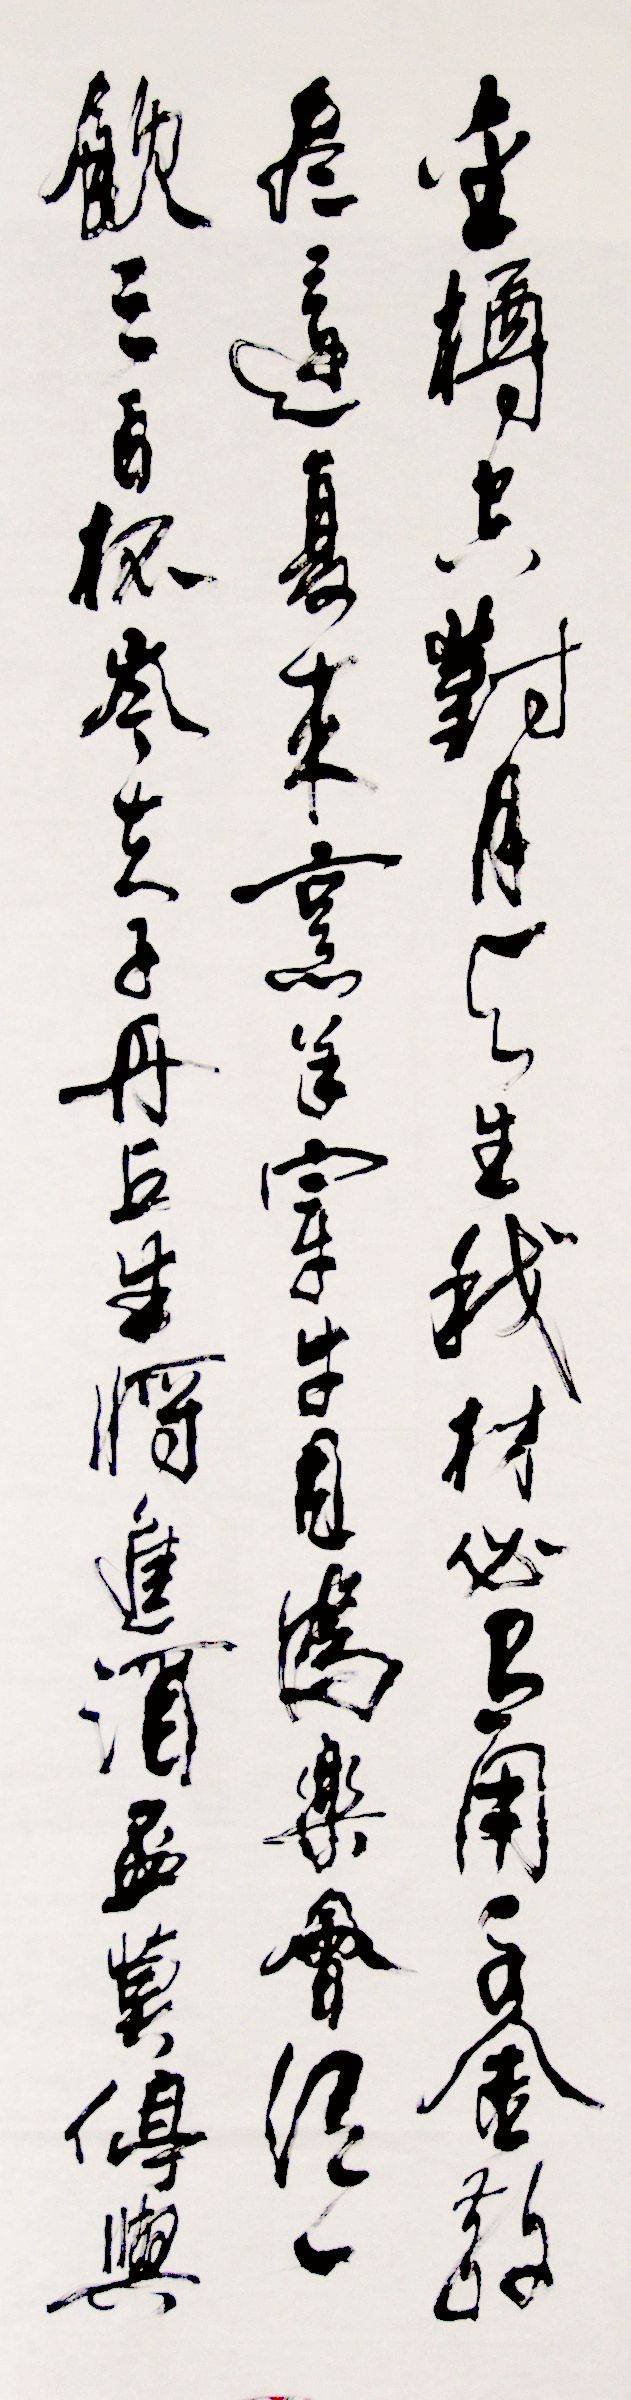 金樽空對月天生我材必有用千金散
盡還复来烹羊宰牛且為樂會須一
飲三百杯岑夫子丹丘生將進酒盃莫停與